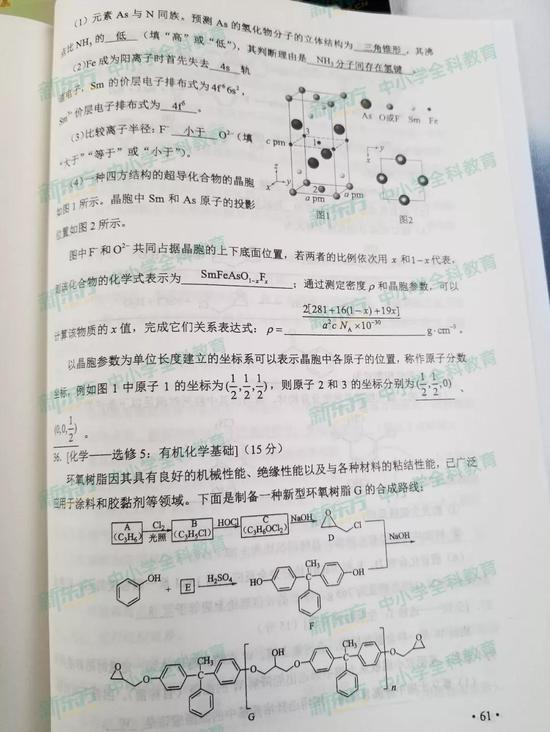 (1) 元素 As 与 N 同族。预测 As 的氢化物分子的立体结构为 三角锥形 ，其沸
点比 NH₃ 的 低 （填“高”或“低”），其判断理由是 NH₃分子间存在氢键 。
(2)Fe 成为阳离子时首先失去 4s 轨
道电子，Sm 的价层电子排布式为 4f⁶6s²，
价层电子排布式为 4f⁵ 。
(3)比较离子半径：F⁻ 小于 O²⁻（填
“大于”“等于”或“小于”）。
(4)一种四方结构的超导化合物的晶胞
如图 1 所示。晶胞中 Sm 和 As 原子的投影
位置如图 2 所示。
As O或F Sm Fe
c pm
3
1
2
a pm a pm
x y z
x y
图1 图2
图中 F⁻ 和 O²⁻ 共同占据晶胞的上下底面位置，若两者的比例依次用 x 和 1−x 代表，
则该化合物的化学式表示为 SmFeAsO₁₋ₓFₓ ；通过测定密度 ρ 和晶胞参数，可以
计算该物质的 x 值，完成它们关系表达式：ρ= 2[281+16(1−x)+19x] / a²c N_A×10⁻³⁰ g·cm⁻³。
以晶胞参数为单位长度建立的坐标系可以表示晶胞中各原子的位置，称作原子分数
坐标，例如图 1 中原子 1 的坐标为(1/2,1/2,1/2)，则原子 2 和 3 的坐标分别为(1/2,1/2,0) 、
(0,0,1/2) 。
36. [化学——选修 5：有机化学基础]（15 分）
环氧树脂因其具有良好的机械性能、绝缘性能以及与各种材料的粘结性能，已广泛
应用于涂料和胶黏剂等领域。下面是制备一种新型环氧树脂 G 的合成路线：
A (C₃H₆) Cl₂ 光照 B (C₃H₅Cl) HOCl C (C₃H₆OCl₂) NaOH O Cl D
NaOH
OH + E H₂SO₄ HO CH₃ OH
F
O O CH₃ O OH O CH₃ O n O
G
·61·
新东方 中小学全科教育